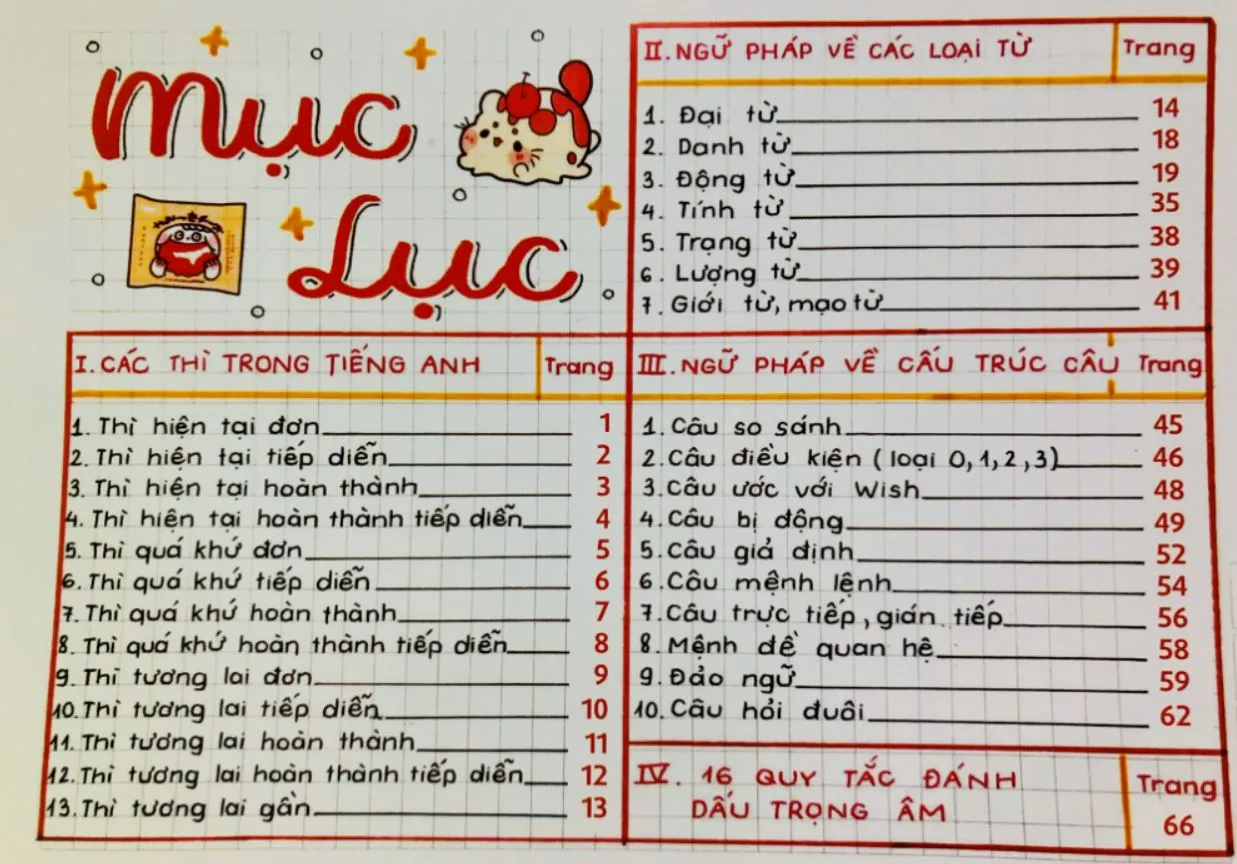 Mục
Lục
I. CÁC THÌ TRONG TIẾNG ANH Trang
1. Thì hiện tại đơn 1
2. Thì hiện tại tiếp diễn 2
3. Thì hiện tại hoàn thành 3
4. Thì hiện tại hoàn thành tiếp diễn 4
5. Thì quá khứ đơn 5
6. Thì quá khứ tiếp diễn 6
7. Thì quá khứ hoàn thành 7
8. Thì quá khứ hoàn thành tiếp diễn 8
9. Thì tương lai đơn 9
10. Thì tương lai tiếp diễn 10
11. Thì tương lai hoàn thành 11
12. Thì tương lai hoàn thành tiếp diễn 12
13. Thì tương lai gần 13
II. NGỮ PHÁP VỀ CÁC LOẠI TỪ Trang
1. Đại từ 14
2. Danh từ 18
3. Động từ 19
4. Tính từ 35
5. Trạng từ 38
6. Lượng từ 39
7. Giới từ, mạo từ 41
III. NGỮ PHÁP VỀ CẤU TRÚC CÂU Trang
1. Câu so sánh 45
2. Câu điều kiện (loại 0, 1, 2, 3) 46
3. Câu ước với Wish 48
4. Câu bị động 49
5. Câu giả định 52
6. Câu mệnh lệnh 54
7. Câu trực tiếp, gián tiếp 56
8. Mệnh đề quan hệ 58
9. Đảo ngữ 59
10. Câu hỏi đuôi 62
IV. 16 QUY TẮC ĐÁNH Trang
DẤU TRỌNG ÂM 66